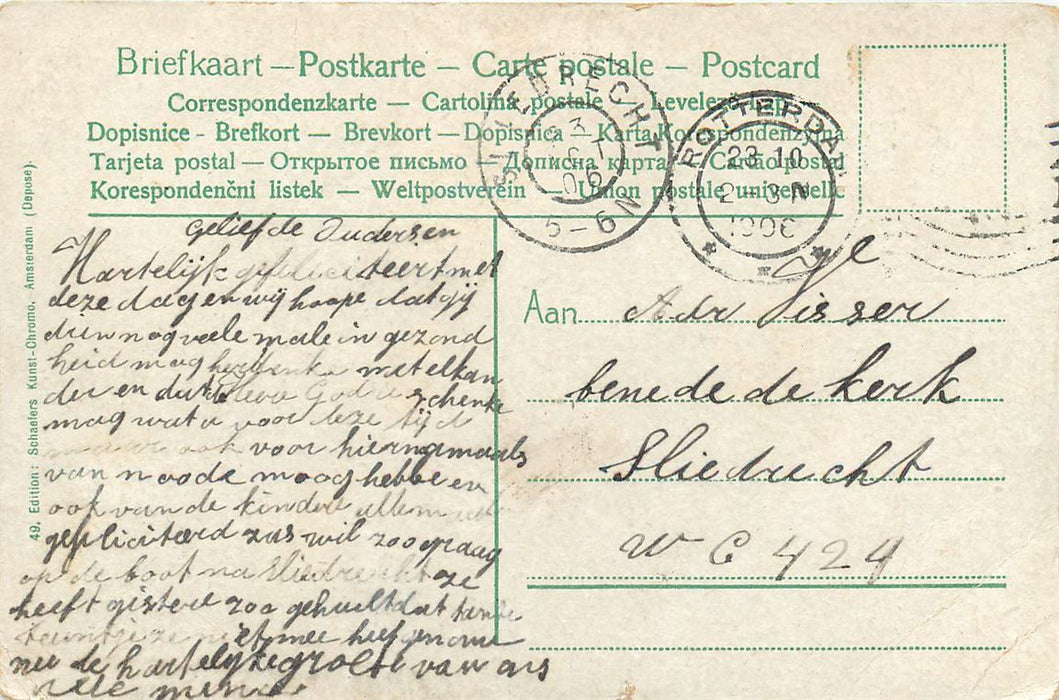 Briefkaart — Postkarte — Carte postale — Postcard
Correspondenzkarte — Cartolina postale — Levelező-Lap
Dopisnice - Brefkort — Brevkort — Dopisnica — Karta Korespondenzyjna
Tarjeta postal — Открытое письмо — Дописна карта — Cartão postal
Korespondenční listek — Weltpostverein — Union postale universelle
SLIEDRECHT
23
OCT
06
5-6N
ROTTERDAM
23 10
2-3N
1906
49. Edition: Schaefers Kunst-Chromo, Amsterdam (Deposé).
geliefde Oudersen
Hartelijk gefeliciteert met
deze dagen wij hoope dat gij
nog veele male in gezond
heid mag met elkan
der en dat God u schenke
mag wat u voor deze tijd
maar ook voor hiernamaals
van noode moog hebbe en
ook van de kindere
gepliciteerd zus wil zoo graag
op de boot na Sliedrecht ze
heeft gistere zoo gehuelt dat tante
ze niet mee heef genome
nu de hartelijke groete van ons
Aan Adr Visser
benede de kerk
Sliedrecht
W C 424